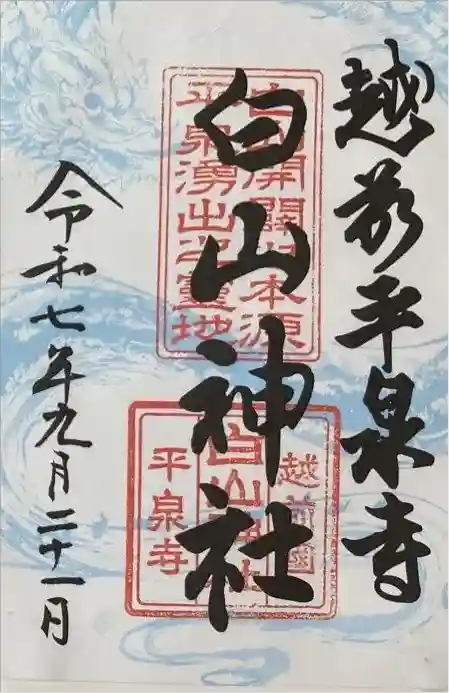 越前平泉寺
白山神社
令和七年九月二十一日
白山開闢之本源
平泉湧出之霊地
越前國
白山神社
平泉寺